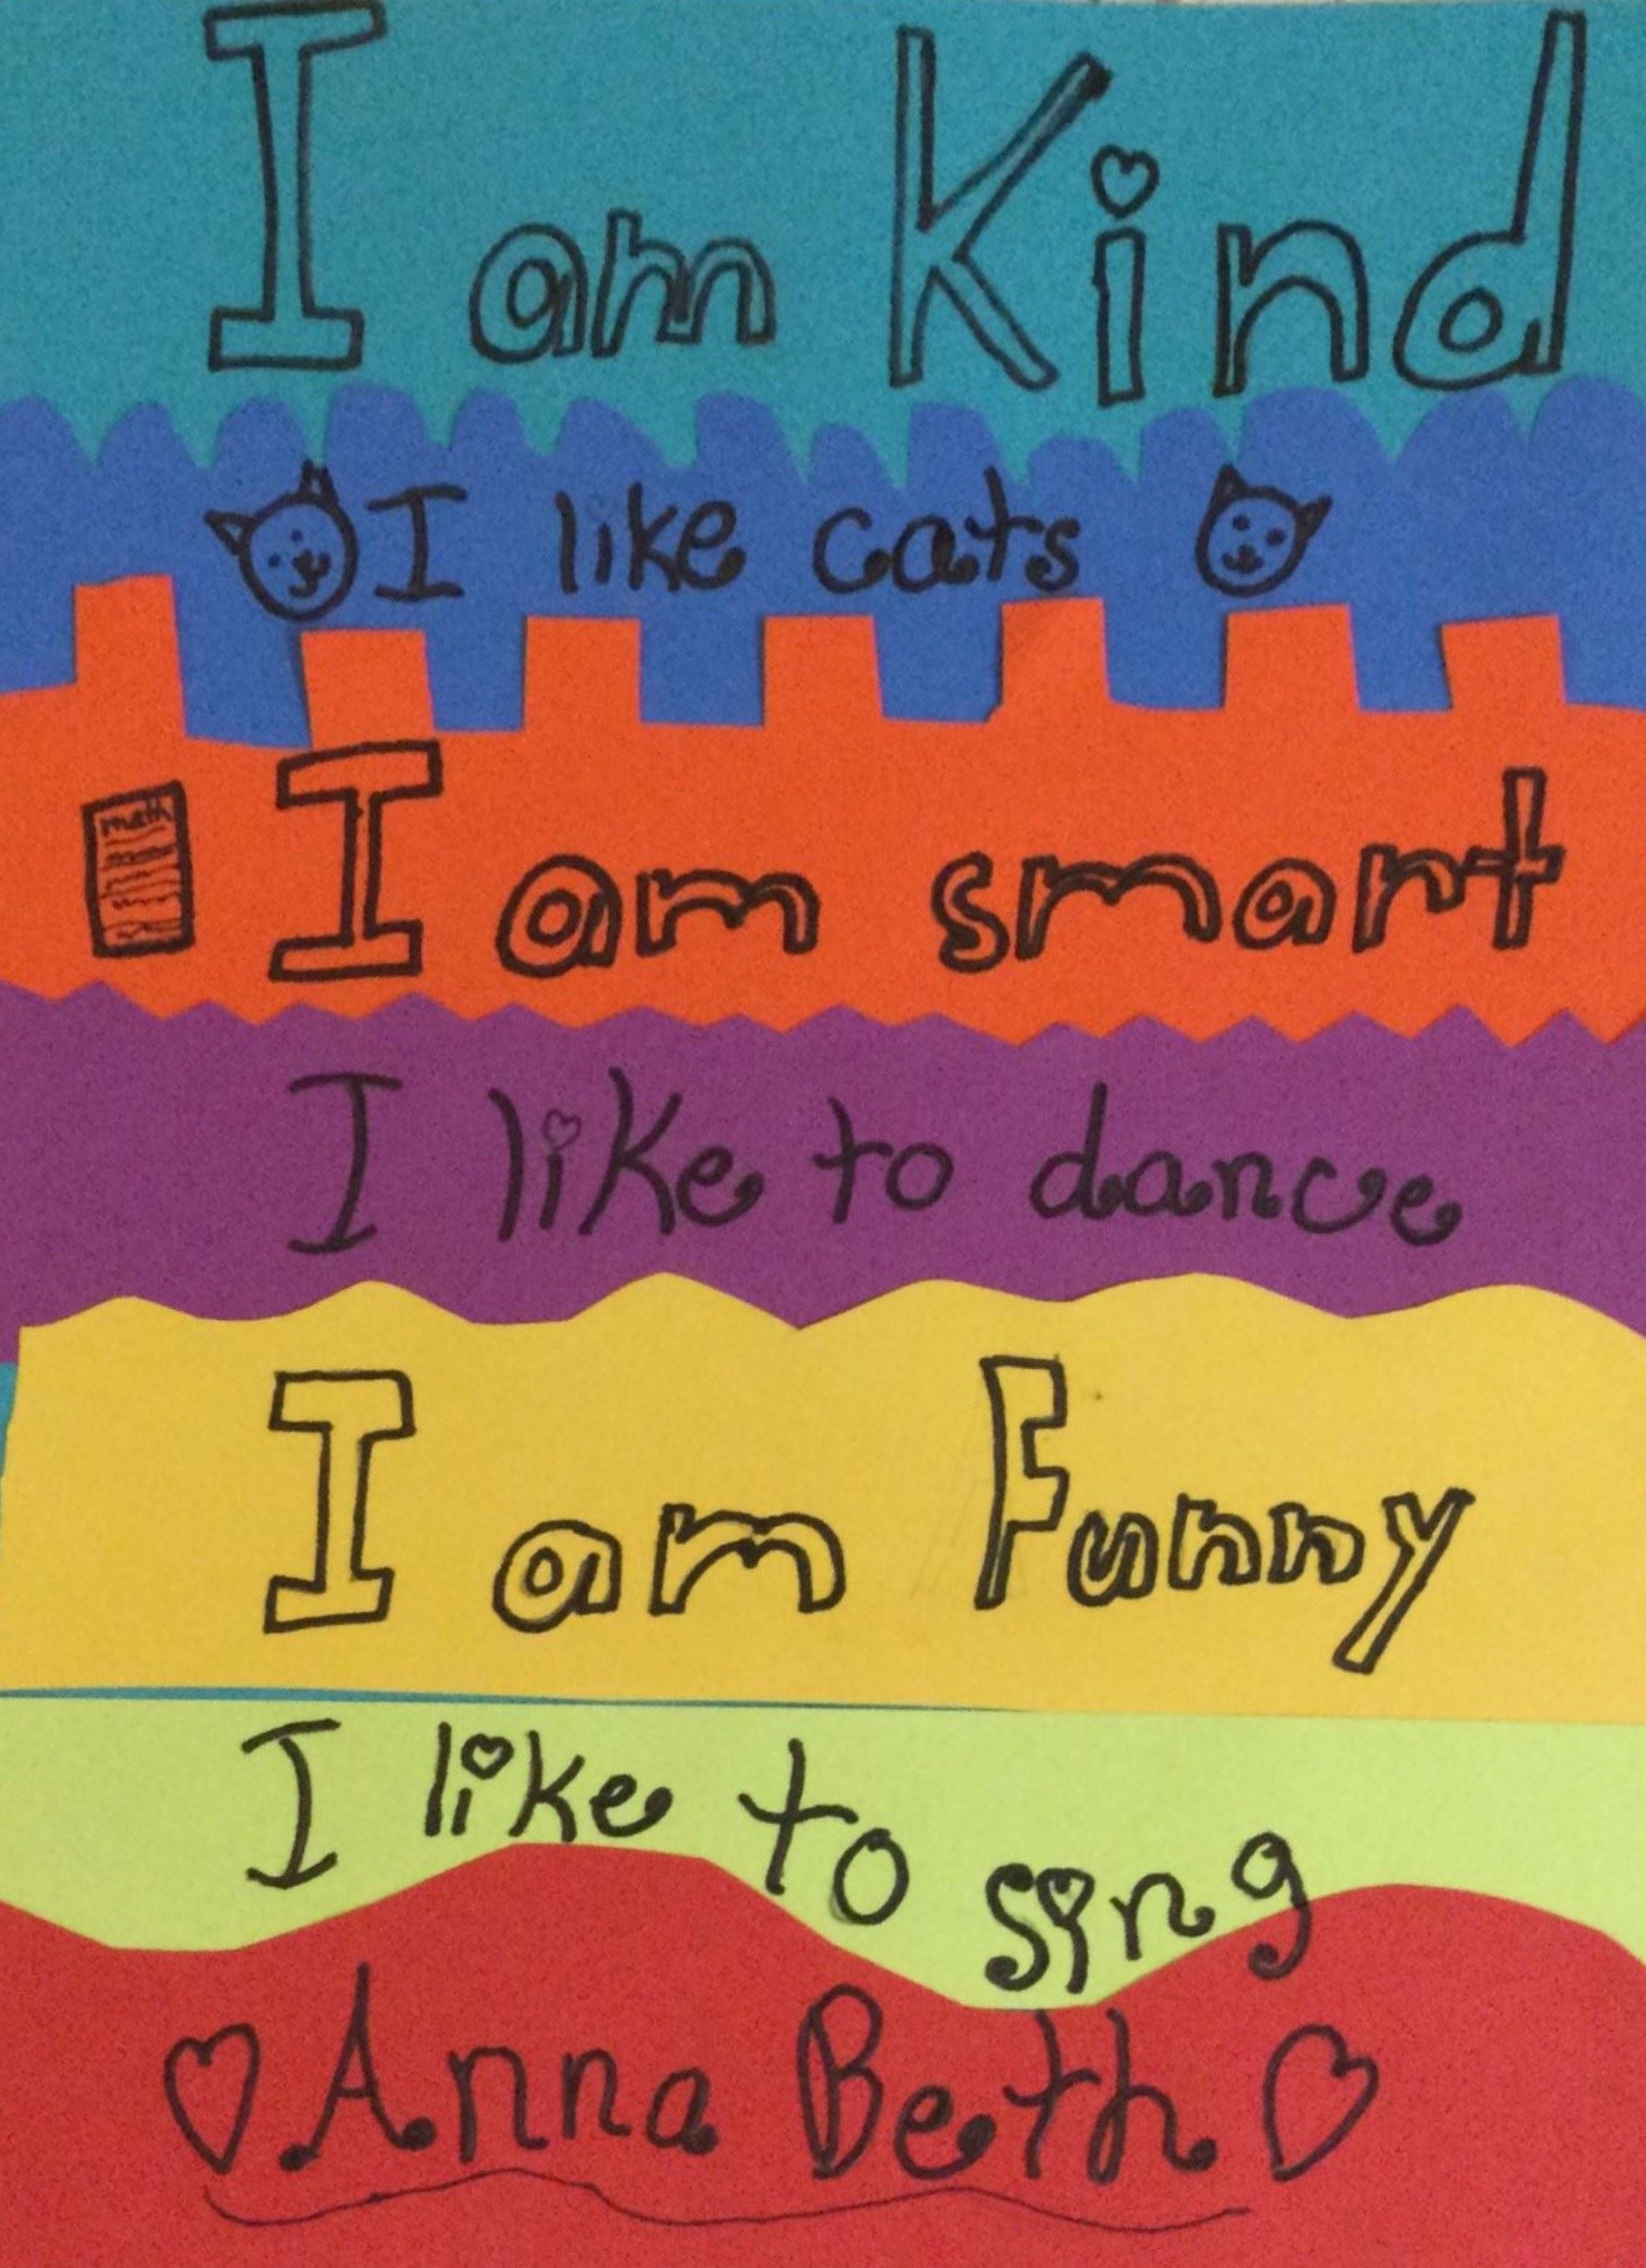 I am Kind
I like cats
math
I am smart
I like to dance
I am Funny
I like to sing
Anna Beth